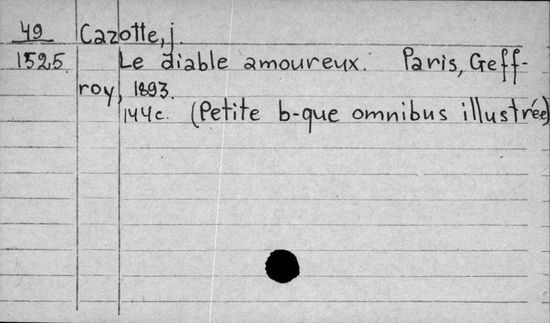 49 Cazotte, j.
1525 Le diable amoureux. Paris, Geff-
roy, 1893.
144c. (Petite b-que omnibus illustrée)